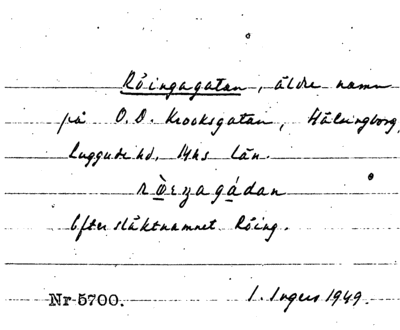 Röingagatan, äldre namn
på O. D. Krooksgatan, Hälsingborg,
Luggude hd, Mhs län.
Efter släktnamnet Röing.
Nr 5700. I. Ingers 1949.